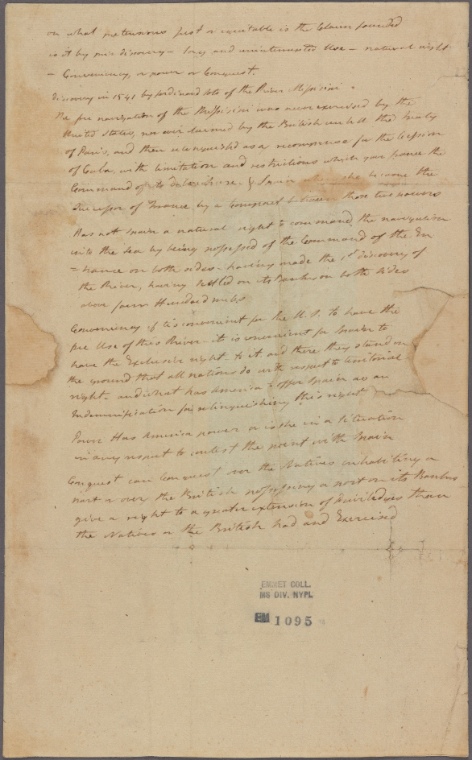 on what pretensions just or equitable is the Claim founded
is it by prior discovery - long and uninterrupted Use - natural right
- Conveniency, or power or Conquest.
Discovery in 1541 by ferdinand soto of the River Messisipi
The free navigation of the Missisipi was never exercised by the
United States, nor ever claimed by the British until the treaty
of Paris, and then relinquished as a recompence for the Cession
of Cuba, with limitation and restrictions which gave france the
Command of & Spain has become the
Successor of france by a Compact between those two powers
Has not Spain a natural right to command the navigation
into the Sea by being possessed of the Command of the En
= trance on both sides - having made the 1st discovery of
the River, having settled on its Banks on both sides
above four Hundred miles
Conveniency if tis convenient for the U.S. to have the
free Use of this River - it is convenient for Spain to
have the Exclusive right to it and there they stand on
the ground that all nations do with respect to territorial
right, and what has America to offer Spain as an
Indemnification for relinquishing this right
Power Has America power or is she in a situation
in any respect to contest the point with Spain
Conquest can Conquest over the Natives inhabiting a
part or over the British possessing a post on its Banks
give a right to a greater extension of priviledges than
the Natives or the British had and Exercised
EMMET COLL.
MS DIV. NYPL
EM 1095